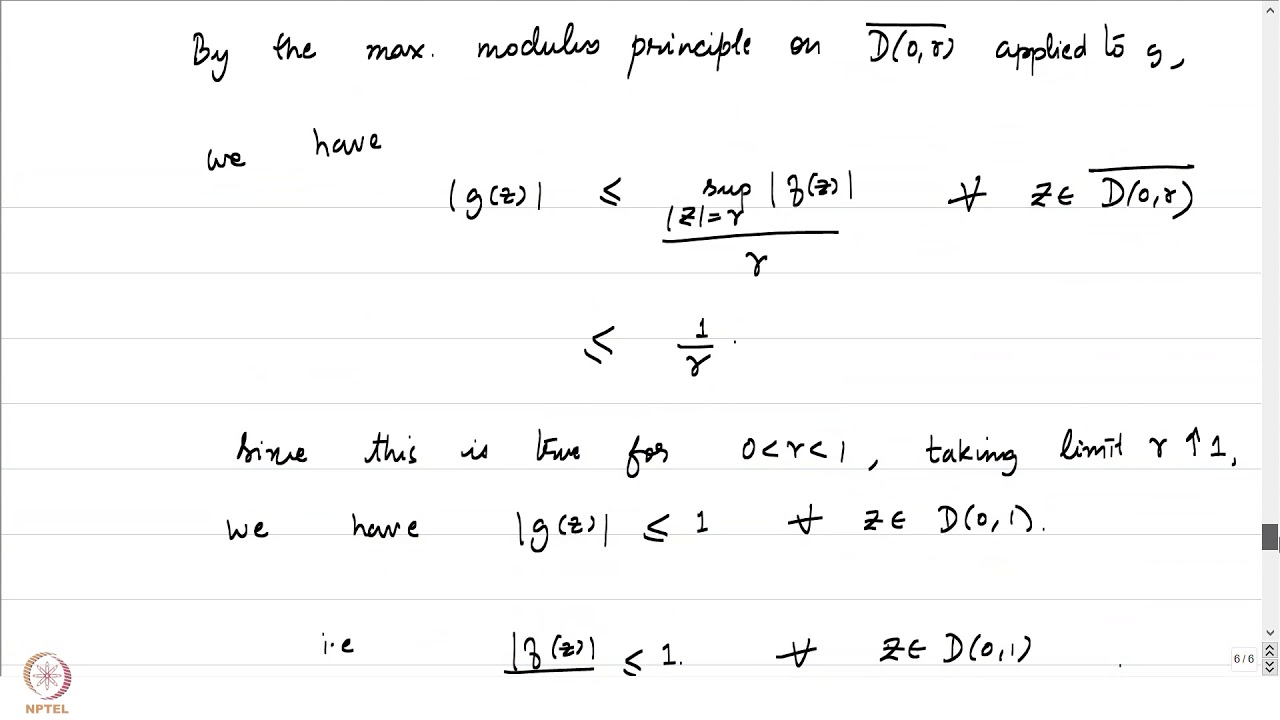 By the max. modulus principle on \overline{D(0,r)} applied to g,
we have
|g(z)| ≤ \frac{\sup_{|z|=r} |f(z)|}{r} ∀ z ∈ \overline{D(0,r)}
≤ \frac{1}{r}.
Since this is true for 0<r<1, taking limit r↑1,
we have |g(z)| ≤ 1 ∀ z ∈ D(0,1).
i.e |f(z)| ≤ 1. ∀ z ∈ D(0,1)
6 / 6
NPTEL